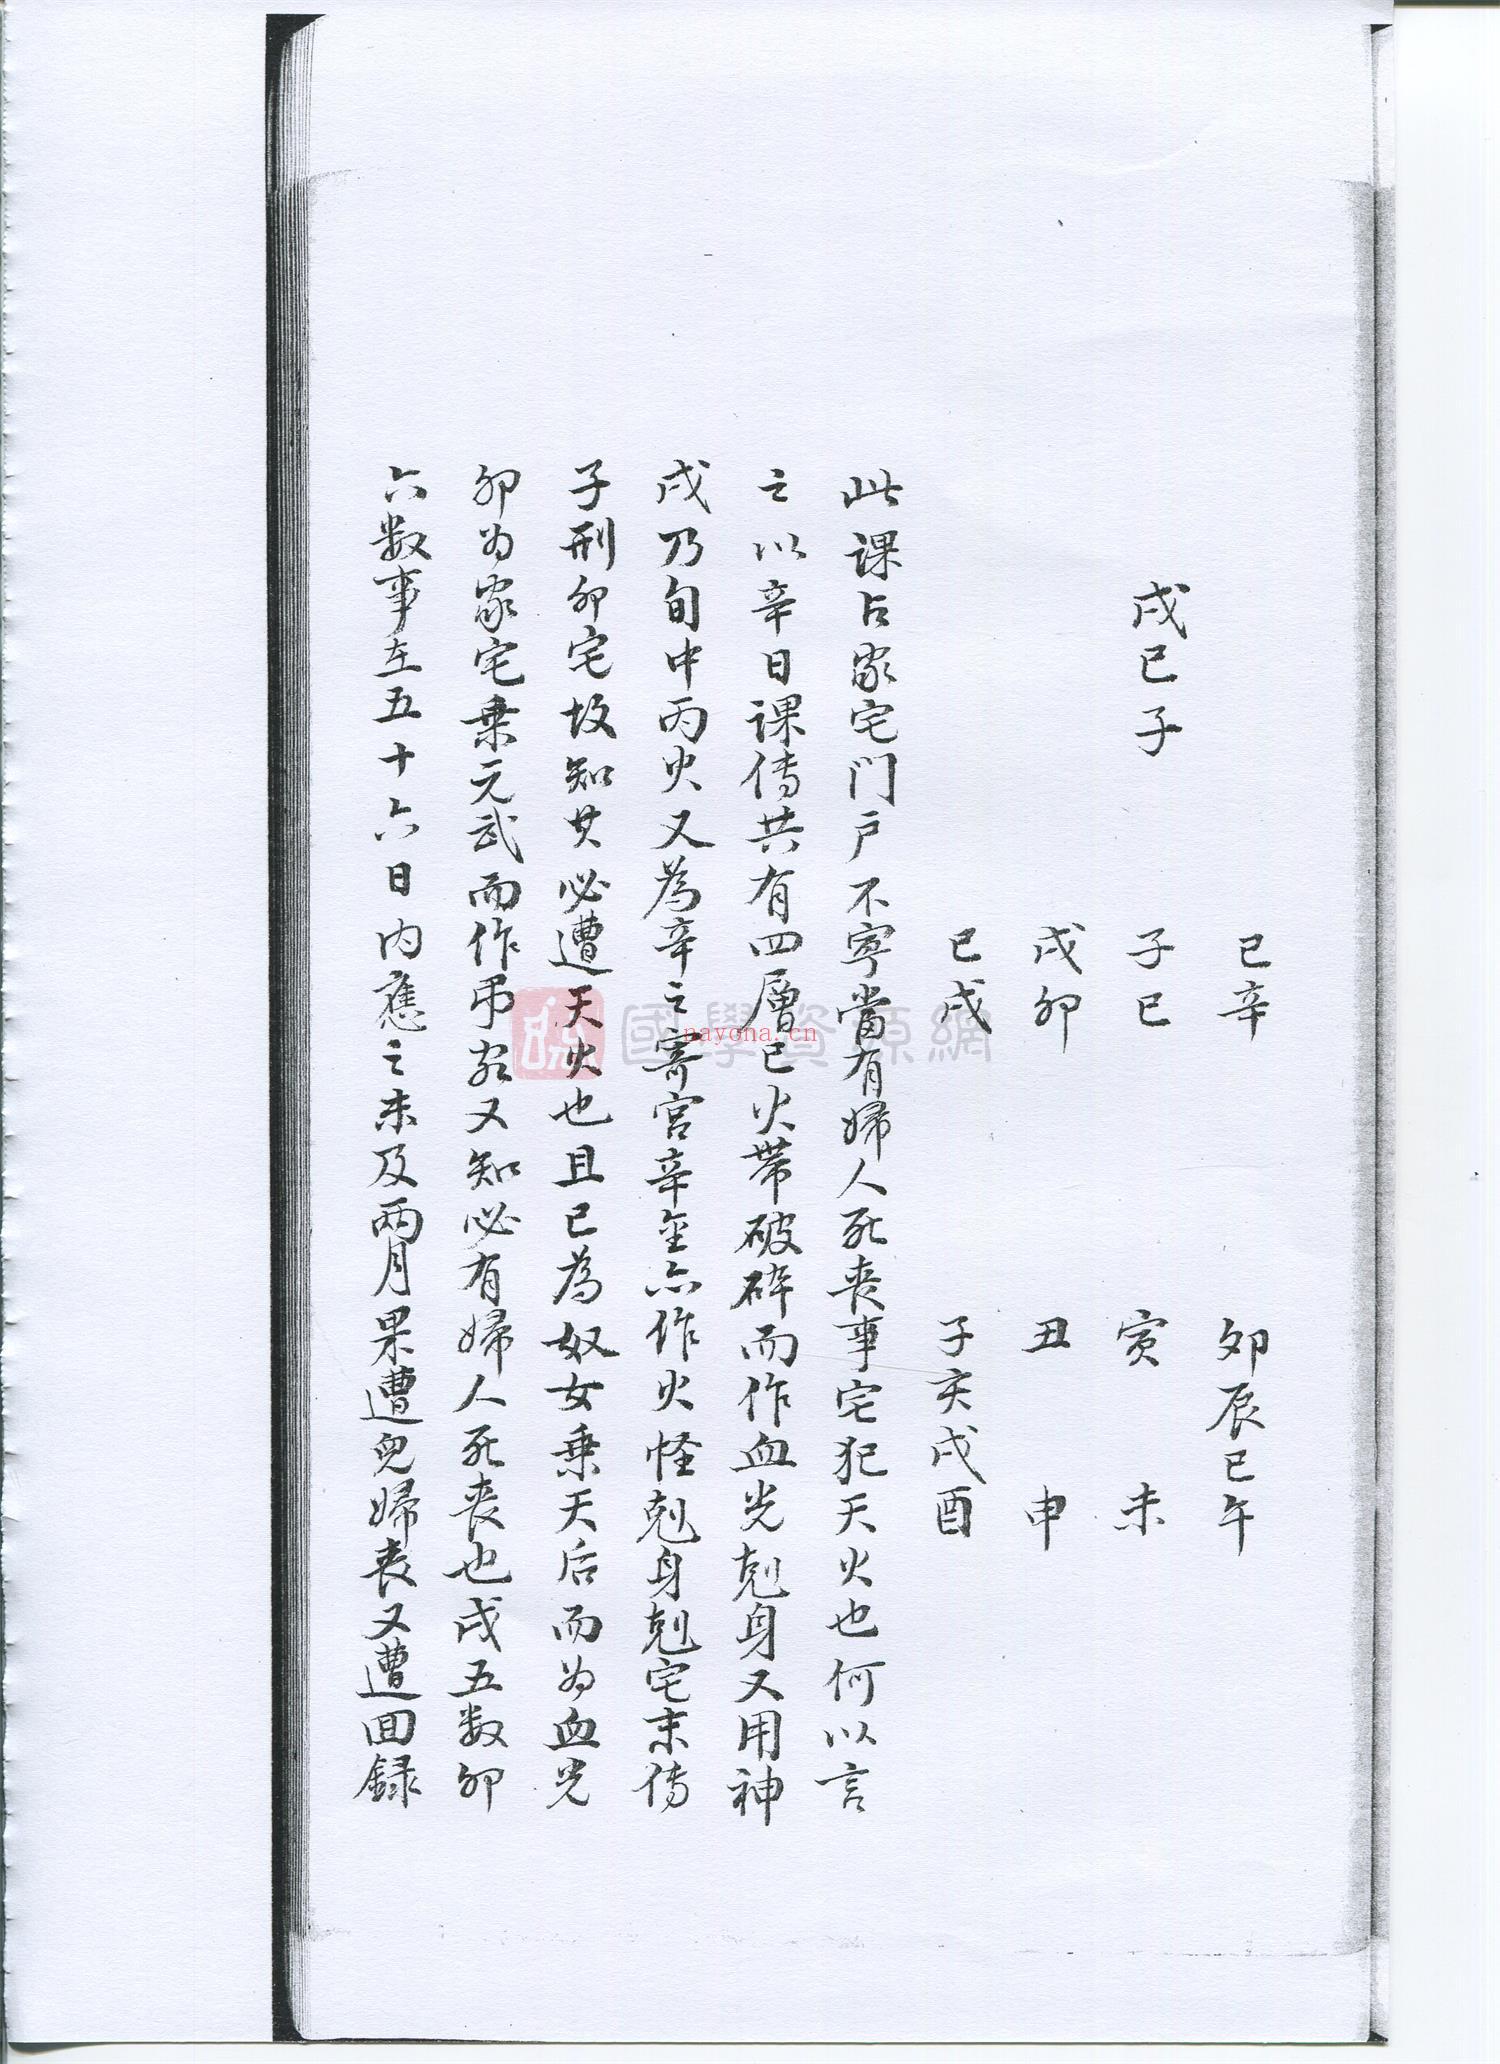 巳辛　卯辰巳午
戌巳子　子巳　寅　未
戌卯　丑　申
巳戌　子亥戌酉
此课占家宅门户不寧當有婦人死丧事宅犯天火也何以言
之以辛日课传共有四層巳火带破碎而作血光剋身又用神
戌乃旬中丙火又為辛之寄宫辛金亦作火怪剋身剋宅末传
子刑卯宅故知其必遭天火也且巳為奴女乘天后而为血光
卯为家宅乘元武而作吊客又知必有婦人死丧也戌五数卯
六数事在五十六日内應之未及两月果遭兒婦丧又遭回録
國學資源網
nayona.cn